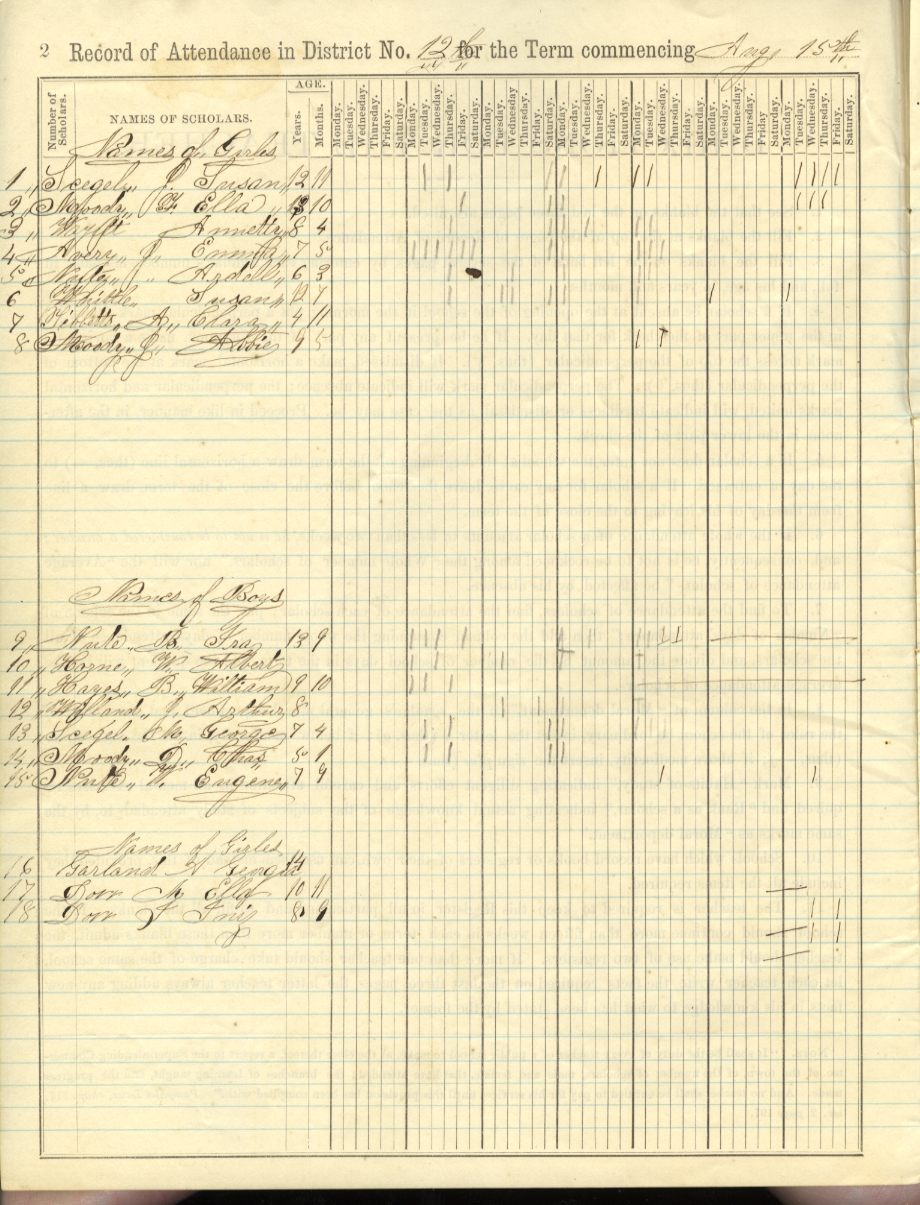 2 Record of Attendance in District No. 12th for the Term commencing Aug. 15th
Number of Scholars. NAMES OF SCHOLARS. AGE. Years. Months. Monday. Tuesday. Wednesday. Thursday. Friday. Saturday. Monday. Tuesday. Wednesday. Thursday. Friday. Saturday. Monday. Tuesday. Wednesday Thursday. Friday. Saturday. Monday. Tuesday. Wednesday. Thursday. Friday. Saturday. Monday. Tuesday. Wednesday. Thursday. Friday. Saturday. Monday. Tuesday. Wednesday. Thursday. Friday Saturday. Monday. Tuesday. Wednesday. Thursday. Friday. Saturday.
Names of Girles
1 Scegel, J. Susan 12 11
2 Moody, F. Ella 10
3 Annette 8 4
4 Avery, J. Emma 7 5
5 Nute, Ardell 6 3
6 Whittle Susan 12 7
7 Tibbetts, A. Clara 4 11
8 Moody, J. Abbie 9 5
Names of Boys
9 Nute B. Ira 13 9
10 Horne W. Albert
11 Hayes B. William 9 10
12 Willand J. Arthur 8
13 Scegel. M. George 7 4
14 Moody D. Chas, 5 1
15 Nute W. Eugene 7 9
Names of Girles
16 Garland A Georgia 14
17 Dow M Ella 10 11
18 Dow F 8 9